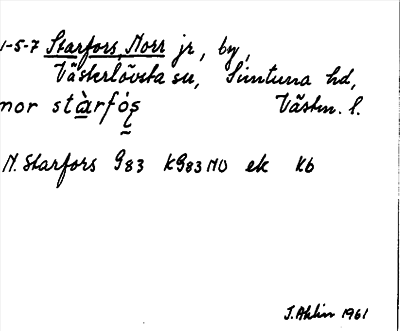 1-5-7 Starfors, Norr jr, by,
Västerlövsta sn, Simtuna hd,
nor stàrfós̨ Västm. l.
N. Starfors G83 KG83NO ek Kb
J. Ahlin 1961